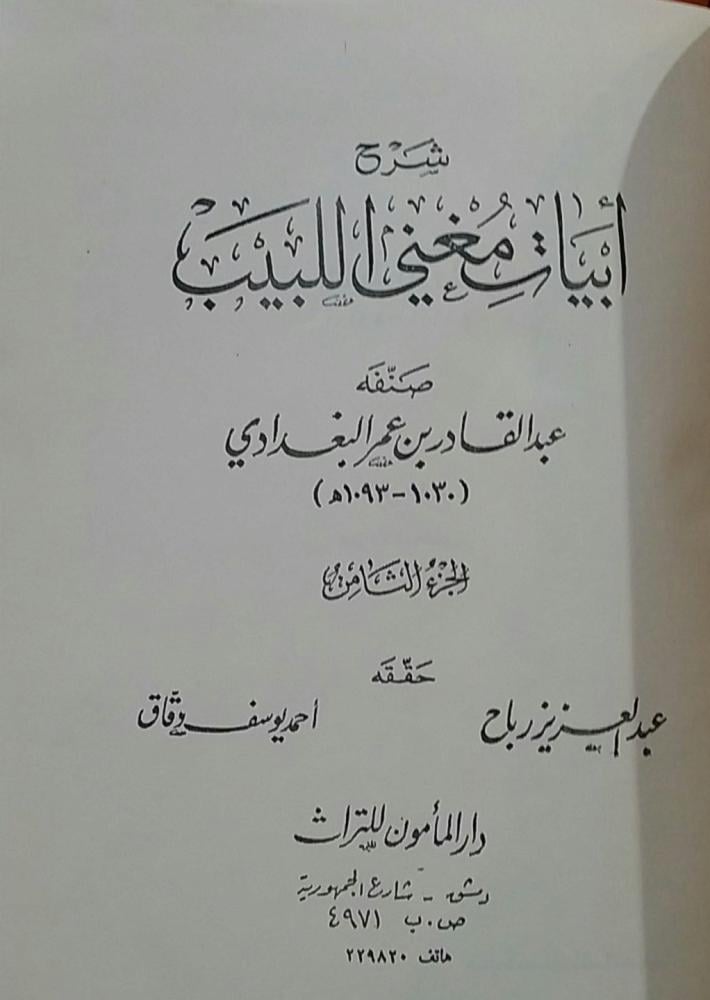 شرح
أبيات مغني اللبيب
صنّفه
عبد القادر بن عمر البغدادي
(١٠٣٠-١٠٩٣ه)
الجزء الثامن
حقّقه
عبد العزيز رباح أحمد يوسف دقاق
دار المأمون للتراث
دمشق - شارع الجمهورية
ص.ب ٤٩٧١
هاتف ٢٢٩٨٢٠